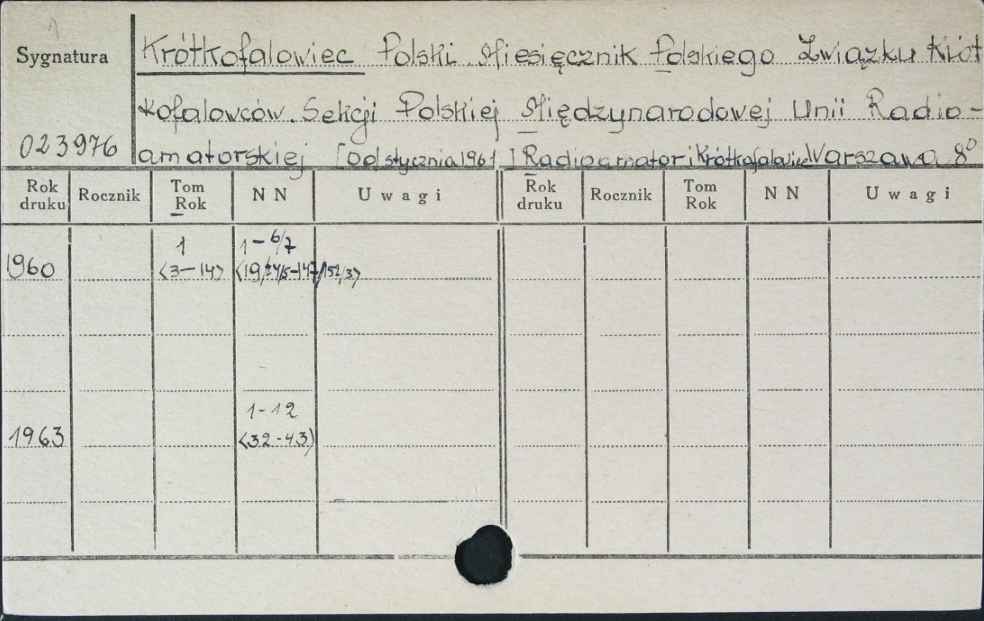 1
Sygnatura
023976
Krótkofalowiec Polski. Miesięcznik Polskiego Związku Krót
kofalowców. Sekcji Polskiej Międzynarodowej Unii Radio-
amatorskiej [od stycznia 1961] Radioamator i Krótkofalowiec Warszawa 8°
Rok druku Rocznik Tom Rok NN Uwagi Rok druku Rocznik Tom Rok NN Uwagi
1 1-6/7
1960 <3-14>
1-12
1963 <32-43)